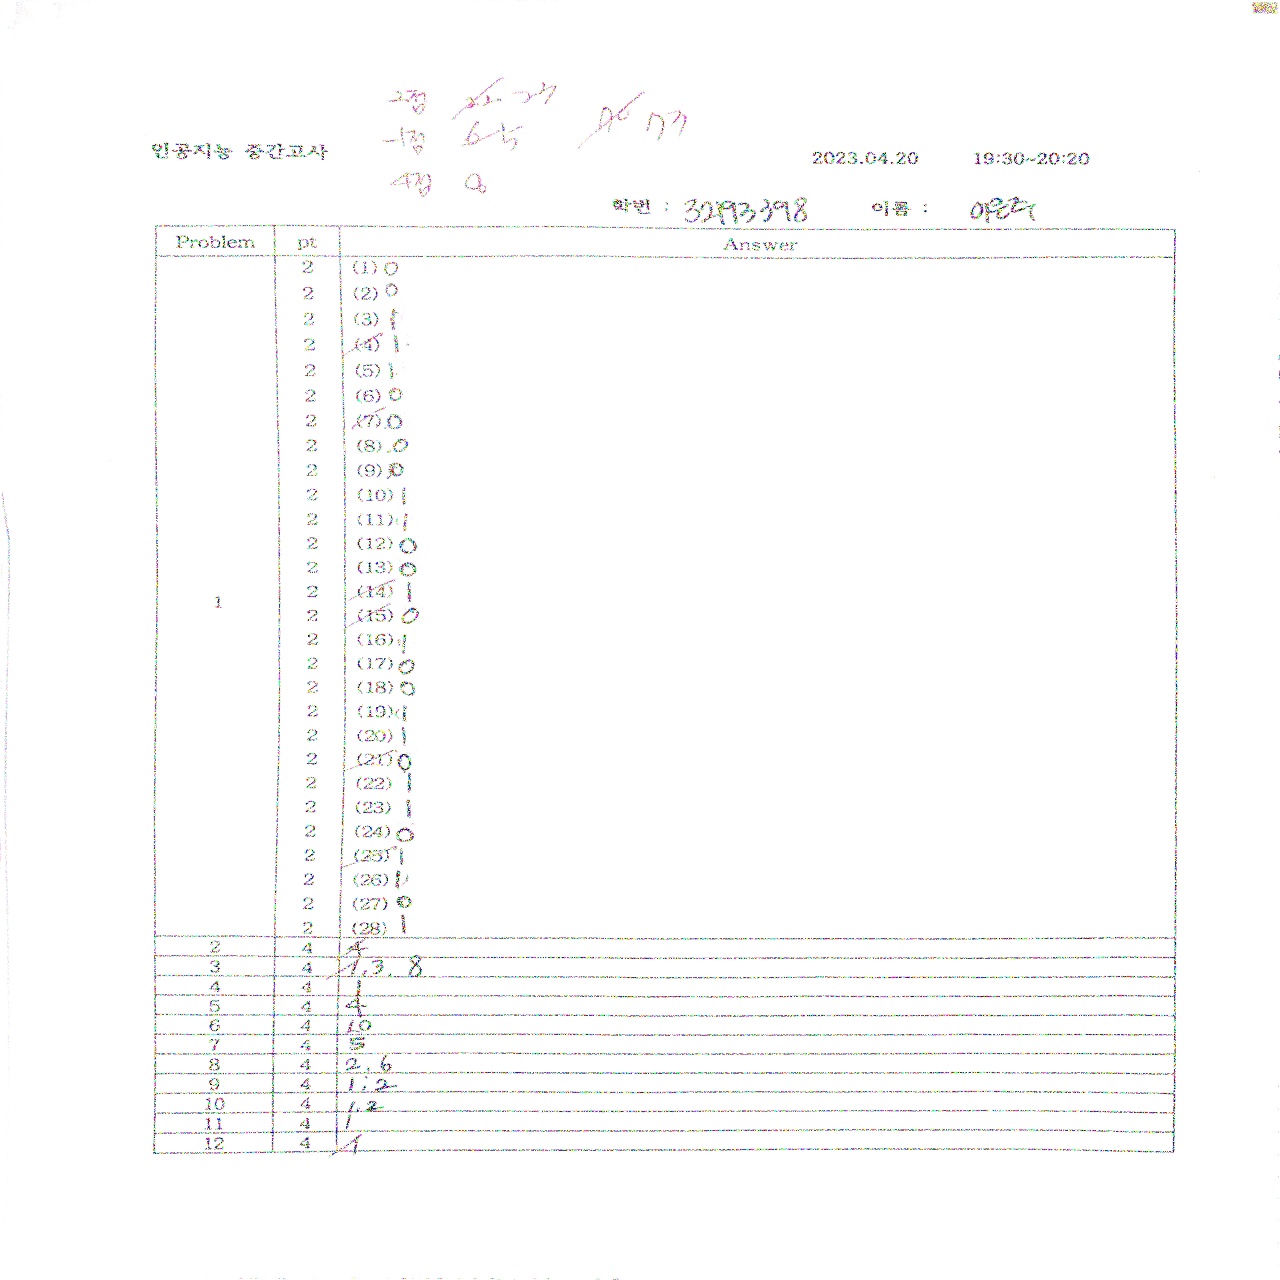 2점
-1점
인공지능 중간고사
2023.04.20 19:30~20:20
4점 8
학번 : 32193398 이름 :
Problem pt Answer
2 (1) 0
2 (2) 0
2 (3) 1
2 (4) 1
2 (5) 1
2 (6) 0
2 (7) 0
2 (8) 0
2 (9) 0
2 (10) 1
2 (11) 1
2 (12) 0
2 (13) 0
2 (14) 1
1
2 (15) 0
2 (16) 1
2 (17) 0
2 (18) 0
2 (19) 1
2 (20) 1
2 (21) 0
2 (22) 1
2 (23) 1
2 (24) 0
2 (25) 1
2 (26) 1
2 (27) 0
2 (28) 1
2 4 4
3 4 1, 3, 8
4 4 1
5 4 4
6 4 10
7 4 5
8 4 2, 6
9 4 1, 2
10 4 1, 2
11 4 1
12 4 1